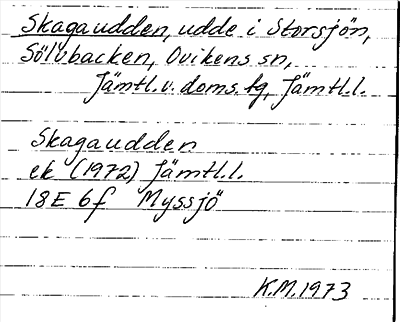 Skagaudden, udde i Storsjön,
Sölvbacken, Ovikens sn,
Jämtl.v. doms.tg, Jämtl.l.
Skagaudden
ek (1972) Jämtl.l.
18E 6f Myssjö
K.M.1973